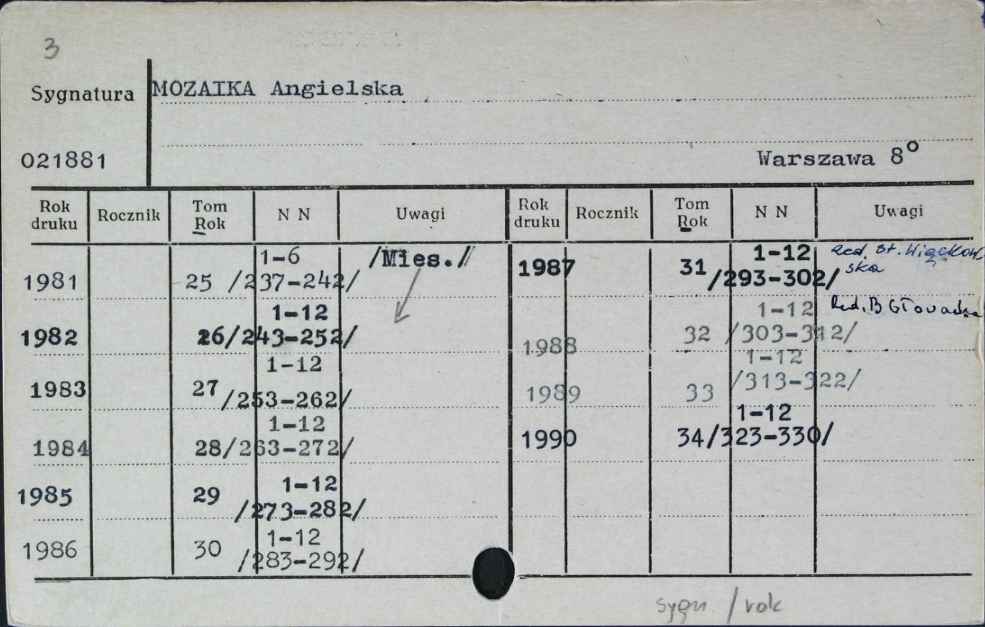 3
Sygnatura MOZAIKA Angielska
021881 Warszawa 8°
Rok druku Rocznik Tom Rok N N Uwagi Rok druku Rocznik Tom Rok N N Uwagi
1981 25 1-6 /237-242/ /Mies./
1982 26 1-12 /243-252/
1983 27 1-12 /253-262/
1984 28 1-12 /263-272/
1985 29 1-12 /273-282/
1986 30 1-12 /283-292/
1987 31 1-12 /293-302/ Red. St. Więckowska
1988 32 1-12 /303-312/ Red. B
1989 33 1-12 /313-322/
1990 34 1-12 /323-330/
sygn / rok